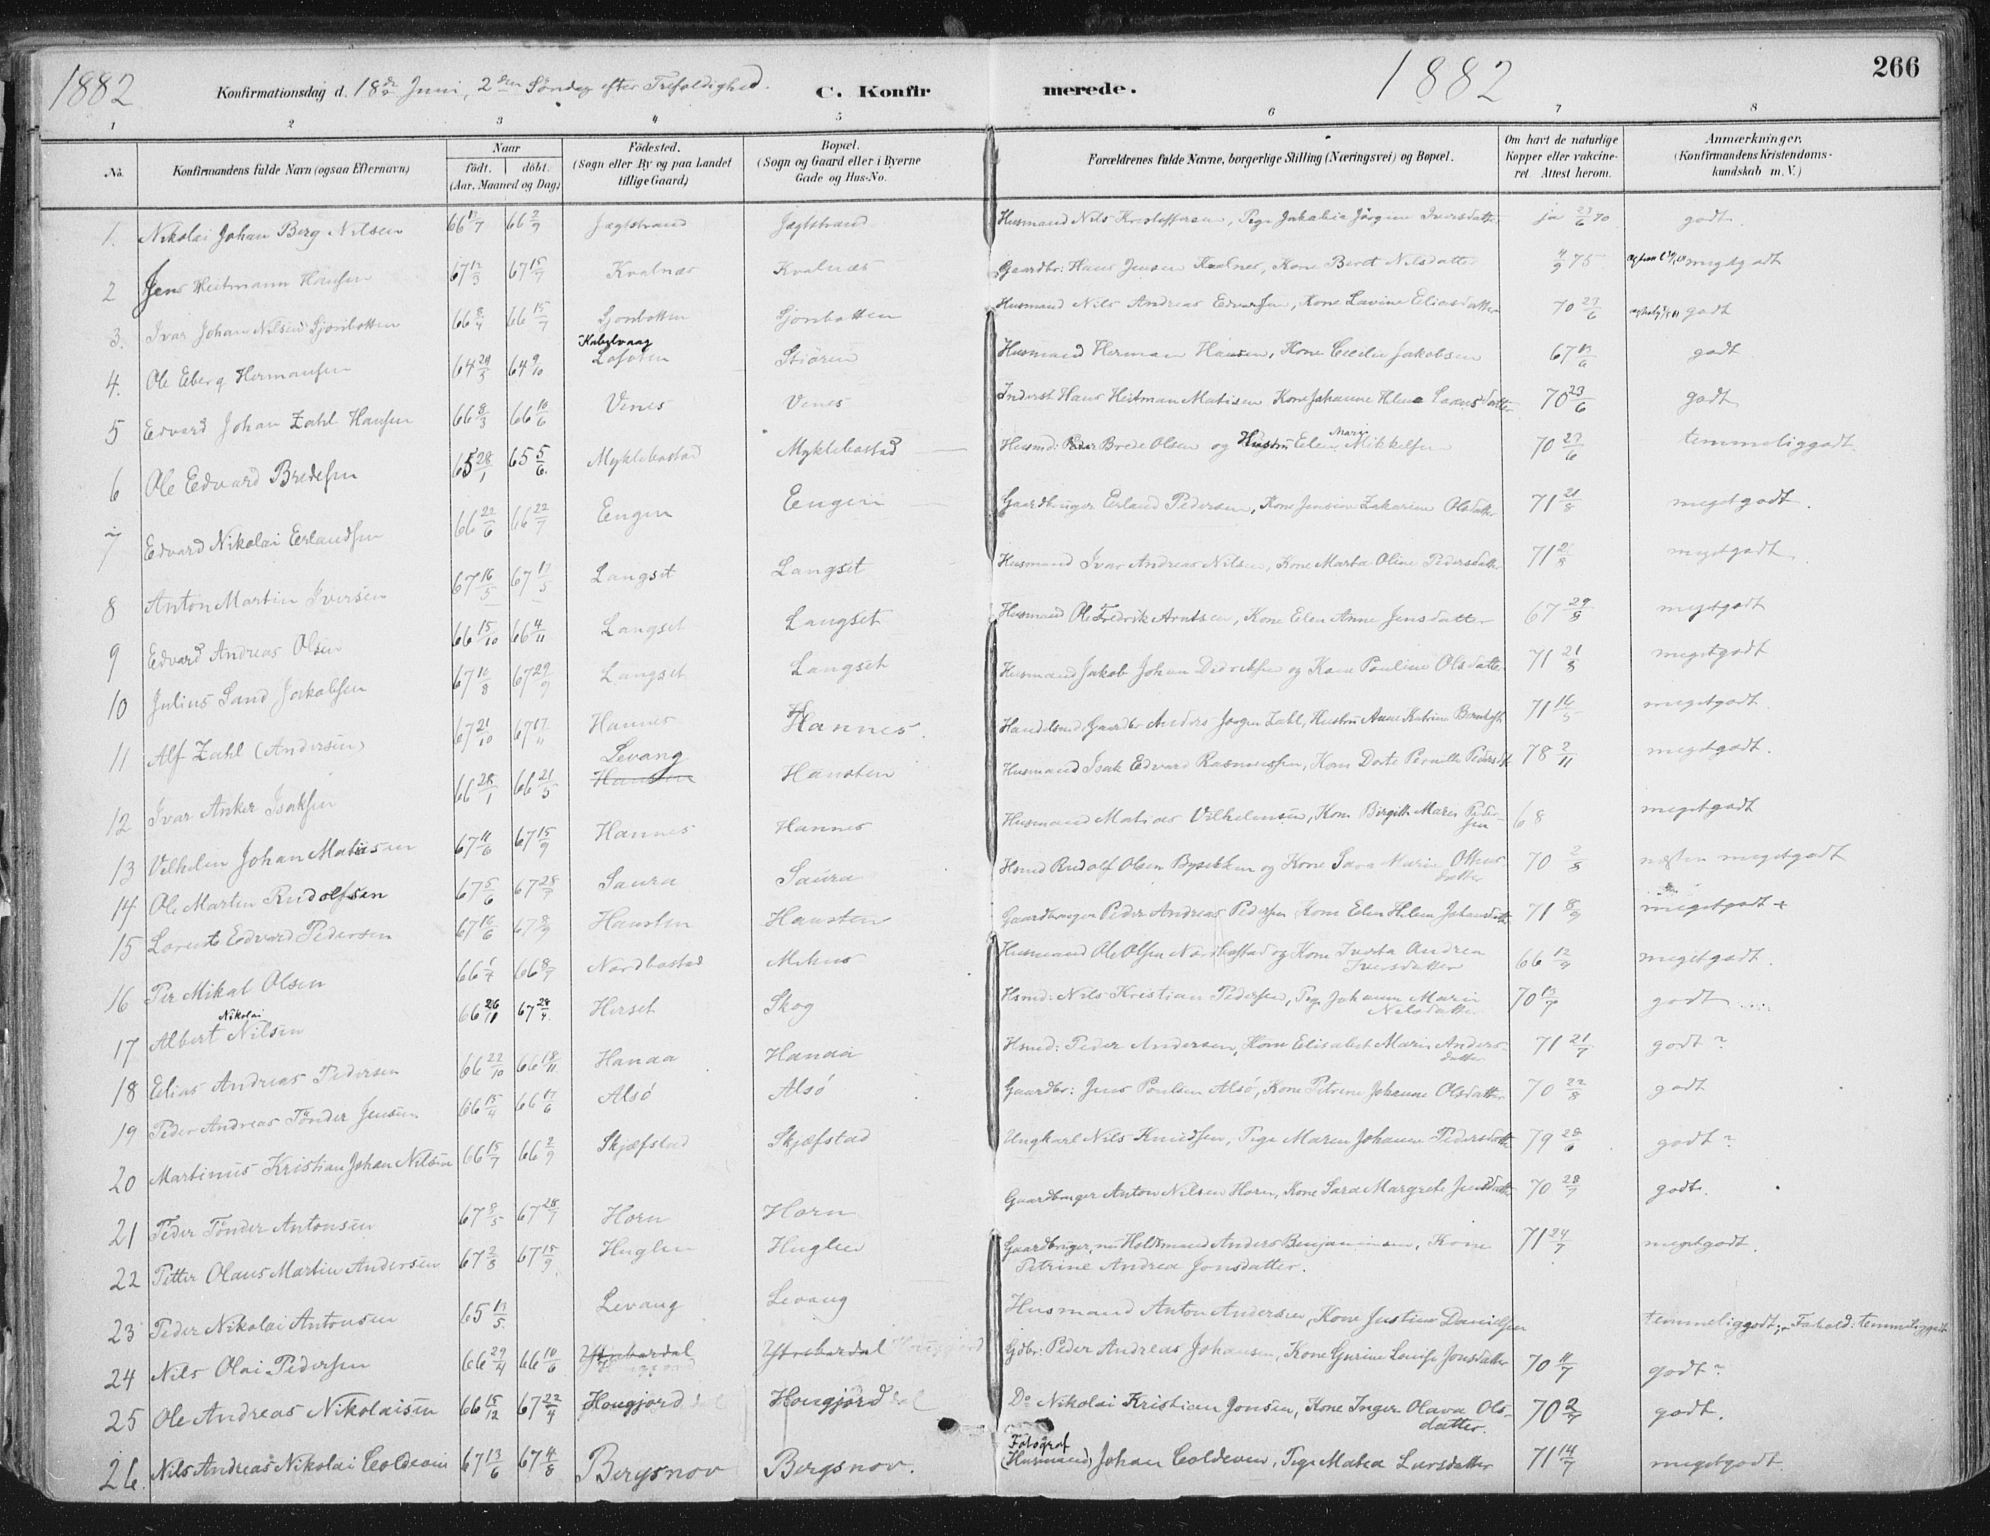 1882 Konfirmationsdag d. 18de Juni, 2den Söndag efter Trefoldighed. C. Konfirmerede. 1882 266
1 2 3 4 5 6 7 8
No. Konfirmandens fulde Navn (ogsaa Efternavn) Naar födt. döbt. (Aar, Maaned og Dag) Födested. (Sogn eller By og paa Landet tillige Gaard) Bopæl. (Sogn og Gaard eller i Byerne Gade og Hus-No. Forældrenes fulde Navne, borgerlige Stilling (Næringsvei) og Bopæl. Om havt de naturlige Kopper eller vakcineret. Attest herom. Anmærkninger. (Konfirmandens Kristendomskundskab m. V.)
1. Nikolai Johan Berg Nilsen 66 66 2/9 Jægtstrand Jægtstrand Husmand Nils Kristoffersen, Pige Jakobia Jörgine Iversdatter ja 23/6 70 godt
2 Jens Heitmann Hansen 67 12/3 67 15/7 Kvalnæs Kvalnæs Gaardbr: Hans Jensen Kvalnes, Kone Beret Nilsdatter 4/9 75 megetgodt
3. Ivar Johan Nilsen Sjonbotten 66 8/4 66 15/7 Sjonbotten Sjonbotten Husmand Nils Andreas Edvardsen, Kone Lavine Eliasdatter 70 23/6 godt
4. Ole Eberg Hermansen 64 29/5 64 9/10 Kabelvaag Lofoten Stiören Husmand Herman Hansen, Kone Cecilie Jakobsen 67 godt
5 Edvard Johan Zahl Hansen 66 8/3 66 10/6 Venes Venes Inderst Hans Heitman Matisen Kone Johanne Elene Laarsdatter 70 23/6 godt
6 Ole Edvard Bredesen 65 28/1 65 5/6 Myklebostad Myklebostad Husmd: Brede Olsen og Hustru Elen Marie Mikkelsen 70 23/6 temmeliggodt
7 Edvard Nikolai Erlandsen 66 22/6 66 22/7 Engen Engen Gaardbruger Erland Pedersen, Kone Jensine Zakarine Olsdatter 71 21/8 megetgodt.
8 Anton Martin Iversen 67 16/5 67 Langset Langset Husmand Ivar Andreas Nilsen, Kone Marta Oline Pedersdatter 71 21/8 megetgodt
9 Edvard Andreas Olsen 66 15/10 66 4/11 Langset Langset Husmand Ole Fredrik Arntsen, Kone Elen Anne Jensdatter 67 29/8 megetgodt
10 Julius Sand Jakobsen 67 10/8 67 29/9 Langset Langset Husmand Jakob Johan Didriksen og Kone Pauline Olsdatter 71 21/8 megetgodt
11 Alf Zahl (Andersen) 67 21/10 67 17/11 Hannes Hannes. Handelsmd, Gaardbr Anders Jörgen Zahl, Hustru Anne Katrine 71 16/5 megetgodt.
12 Ivar Anker Isaksen 66 28/1 66 21/5 Levang Hausten Hausten Husmand Isak Edvard Rasmussen, Kone Dorte Pernille Pedersdt 78 2/11 megetgodt.
13 Vilhelm Johan Matisen 67 11/6 67 15/9 Hannes Hannes Husmand Matias Vilhelmsen, Kone Birgitte Marie Pedersen 68 megetgodt
14 Ole Martin Rudolfsen 67 5/6 67 28/7 Saura Saura Hsmd Rudolf Olsen og Kone Sara Marie datter 70 2/8 næsten megetgodt
15 Lorents Edvard Pedersen 67 16/6 67 8/9 Hausten Hausten Gaardbruger Peder Andreas Pedersen Kone Elen Helene Johansdatter 71 8/9 megetgodt +
16 Per Mikal Olsen 66 1/4 66 8/7 Nordbostad Mehus Husmand Ole Olsen Nordbostad og Kone Iverta Andrea Iversdatter 66 12/9 megetgodt.
17 Albert Nikolai Nilsen 66 26/10 67 28/4 Herset Skog Hsmd: Nils Kristian Pedersen, Pige Johanne Marie Nilsdatter 70 13/7 godt
18 Elias Andreas Pedersen 66 22/10 66 18/11 Hanaa Hanaa Hsmd: Peder Andersen, Kone Elisabet Marie Andersdatter 71 21/7 godt?
19 Peder Andreas Tönder Jensen 66 15/4 66 17/6 Alsö Alsö Gaardbr: Jens Poulsen Alsö, Kone Petrine Johanne Olsdatter 70 22/8 godt
20 Martinus Kristian Johan Nilsen 66 15/7 66 2/9 Skjæfstad Skjæfstad Ungkarl Nils Knudsen, Pige Maren Johanne Pedersdatter 79 28/6 godt?
21 Peder Tönder Antonsen 67 8/5 67 28/7 Horn Horn Gaardbruger Anton Nilsen Horn, Kone Sara Margrete Jensdatter 70 28/7 godt.
22 Petter Olaus Martin Andersen 67 2/8 67 15/9 Huglen Huglen Gaardbruger, nu Anders Benjaminsen, Kone Petrine Andrea Jonsdatter. 71 24/7 megetgodt.
23 Peder Nikolai Antonsen 65 13/5 Levang Levang Husmand Anton Andersen, Kone Justine Danielsen temmeliggodt; Forhold: temmeliggodt
24 Nils Olai Pedersen 66 29/4 66 10/6 Ytrebardal Ytrebardal Gdbr: Peder Andreas Johansen, Kone Gurine Lovise Jonsdatter 70 11/7 godt?
25 Ole Andreas Nikolaisen 66 15/12 67 22/4 Hougjord Hougjord Do Nikolai Kristian Jonsen, Kone Inger Olava Olsdatter. 70 2/7 godt.
26. Nils Andreas Nikolai Coldevin 67 13/6 67 4/8 Bergsnov Bergsnov. Fotograf (Husmand) Johan Coldevin, Pige Matea Larsdatter 71 14/7 megetgodt.